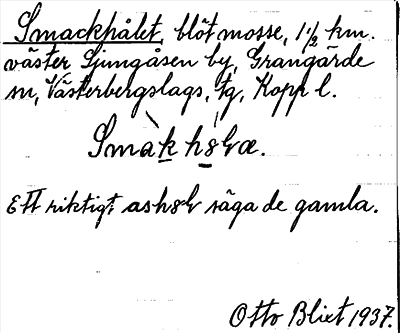 Smackhålet, blöt mosse, 1 1/2 km.
väster Ljungåsen by, Grangärde
sn, Västerbergslags, tg, Kopp l.
Smàk h8̲Ląe.
Ett riktigt ash8L säga de gamla.
Otto Blixt 1937.